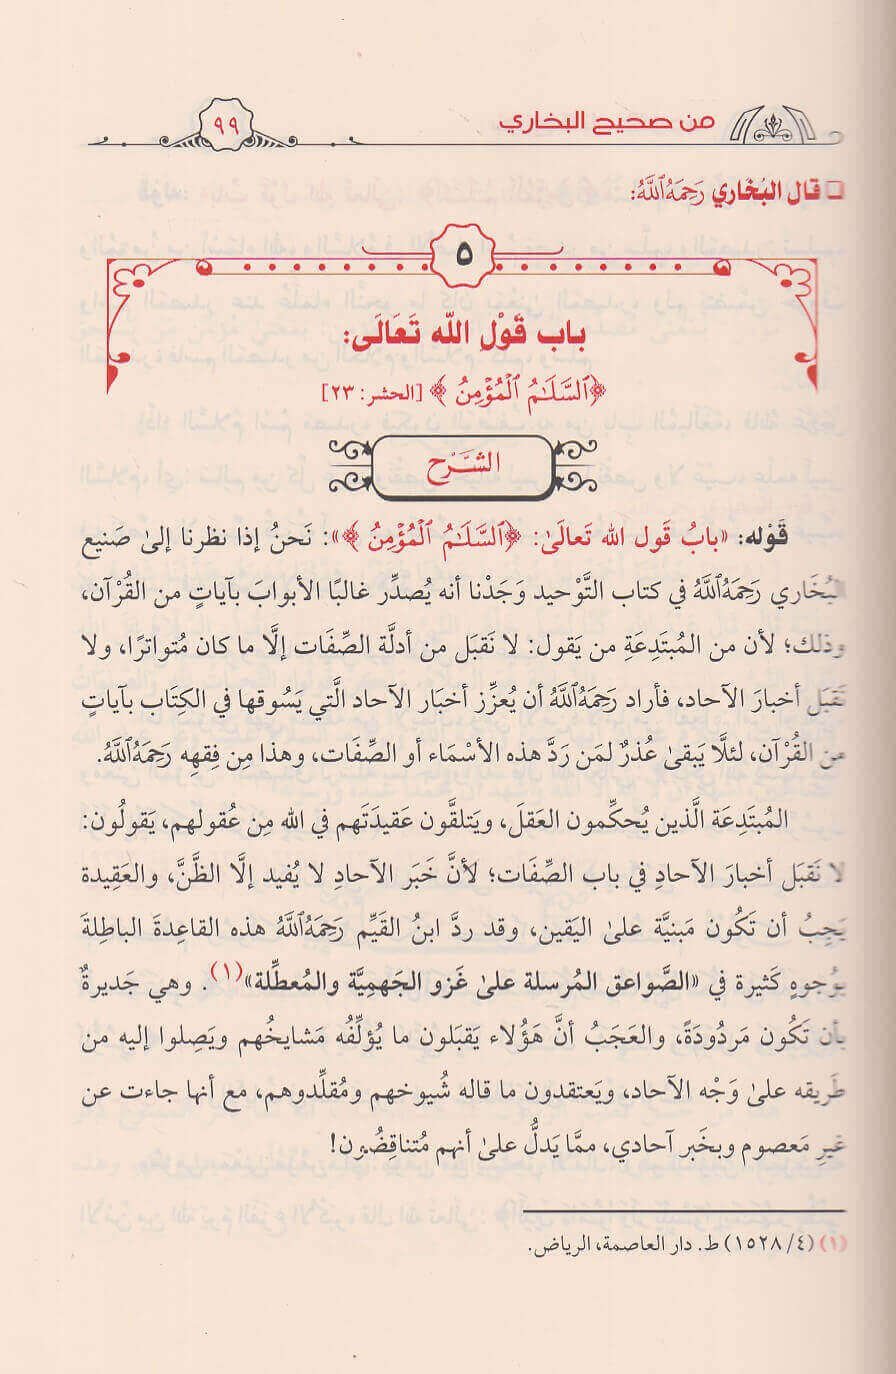 من صحيح البخاري
٩٩
قال البُخَاري رَحِمَهُ ٱللَّهُ:
٥
باب قَوْلِ اللَّه تَعَالَى:
﴿ٱلسَّلَٰمُ ٱلْمُؤْمِنُ﴾ [الحشر: ٢٣]
الشَّرْح
قَوْله: «بابُ قَول الله تَعالَىٰ: ﴿ٱلسَّلَٰمُ ٱلْمُؤْمِنُ﴾»: نَحنُ إذا نظرنا إلىٰ صَنيع
البُخَاري رَحِمَهُ ٱللَّهُ في كتاب التَّوْحيد وَجَدْنا أنه يُصدِّر غالبًا الأبوابَ بآياتٍ من القُرْآن،
وذلك؛ لأن من المُبتَدِعَةِ من يَقول: لا نَقبَل من أدلَّة الصِّفَات إلَّا ما كان مُتواترًا، ولا
نَقبَل أخبارَ الآحاد، فأراد رَحِمَهُ ٱللَّهُ أن يُعزِّز أخبَار الآحاد الَّتي يَسُوقها في الكِتَاب بآياتٍ
من القُرْآن، لئلَّا يَبقىٰ عُذرٌ لمَن رَدَّ هذه الأسْمَاء أو الصِّفَات، وهذا مِن فِقهِه رَحِمَهُ ٱللَّهُ.
المُبتَدِعَة الَّذين يُحكِّمون العَقلَ، ويَتلقَّون عَقيدَتَهم في الله مِن عُقولهم، يَقولُون:
لا نَقبَل أخبارَ الآحادِ في باب الصِّفَات؛ لأنَّ خَبَر الآحادِ لا يُفيد إلَّا الظَّنَّ، والعَقِيدة
يَجِبُ أن تَكُون مَبنيَّة علىٰ اليَقين، وقد ردَّ ابنُ القَيِّم رَحِمَهُ ٱللَّهُ هذه القاعِدةَ الباطِلةَ
بوُجوهٍ كَثيرة في «الصَّواعق المُرسلة علىٰ غَزو الجَهميَّة والمُعطِّلة»(١). وهي جَديرةٌ
بأن تَكُون مَردُودَةً، والعَجَبُ أنَّ هَؤُلاء يَقبَلون ما يُؤلِّفُه مَشايخُهم ويَصِلوا إليه من
طَريقه علىٰ وَجْه الآحاد، ويَعتقدون ما قاله شُيوخهم ومُقلِّدوهم، مع أنها جاءت عن
غَيرِ مَعصوم وبخَبر آحادي، ممَّا يَدلُّ علىٰ أنهم مُتناقِضُون!
(١) (٤/ ١٥٢٨) ط. دار العاصمة، الرياض.